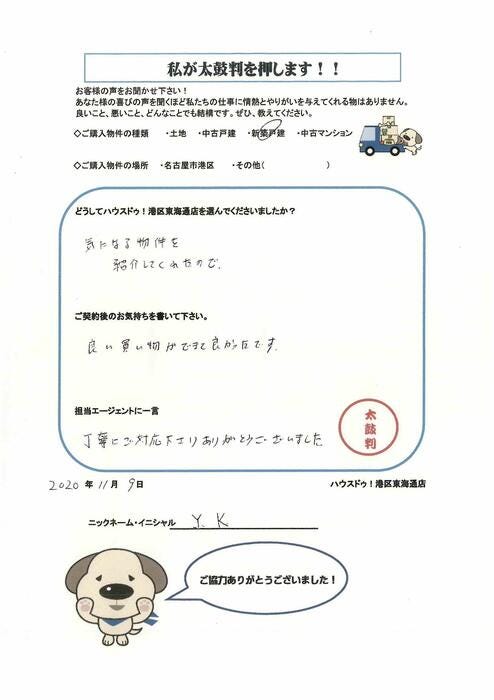 私が太鼓判を押します！！
お客様の声をお聞かせ下さい！
あなた様の喜びの声を聞くほど私たちの仕事に情熱とやりがいを与えてくれる物はありません。
良いこと、悪いこと、どんなことでも結構です。ぜひ、教えてください。
◇ご購入物件の種類 ・土地 ・中古戸建 ・新築戸建 ・中古マンション
◇ご購入物件の場所 ・名古屋市港区 ・その他( )
どうしてハウスドゥ！港区東海通店を選んでくださいましたか？
気になる物件を
紹介してくれたので、
ご契約後のお気持ちを書いて下さい。
良い買い物ができて良かったです。
担当エージェントに一言
丁寧にご対応下さりありがとうございました
太鼓判
2020 年 11 月 9 日 ハウスドゥ！港区東海通店
ニックネーム・イニシャル Y. K
ご協力ありがとうございました！